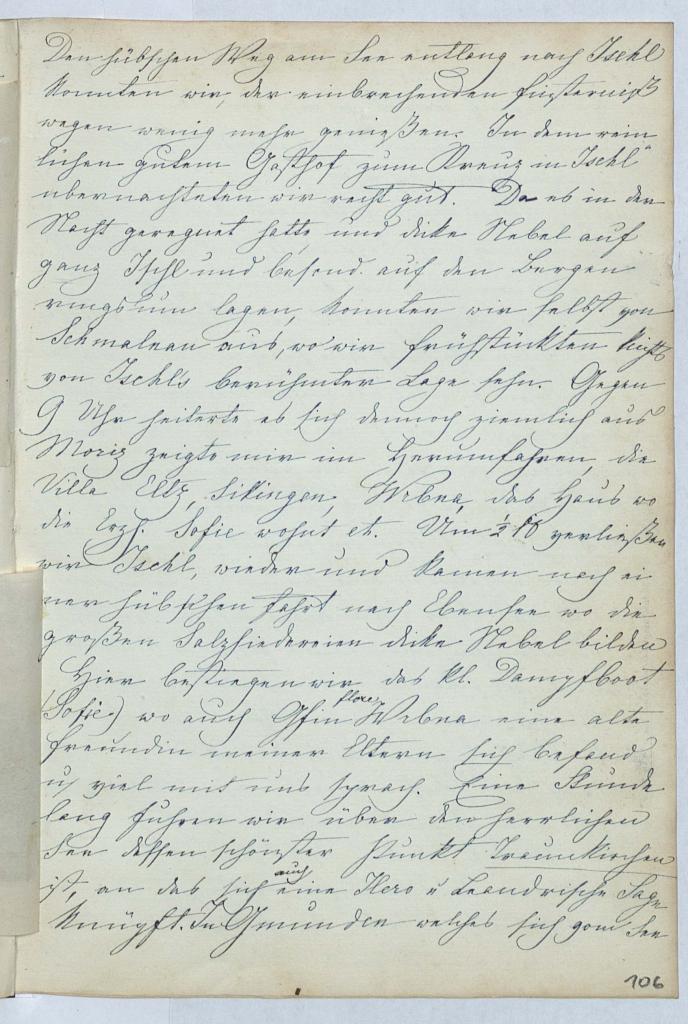 Den hübschen Weg am See entlang nach Ischl
konnten wir, der einbrechenden Finsterniß
wegen wenig mehr genießen. In dem rein
lichen gutem Gasthof zum Kreuz in Ischl"
übernachteten wir recht gut. Da es in der
Nacht geregnet hatte, und dicke Nebel auf
ganz Ischl und besond. auf den Bergen
ringsum lagen, konnten wir selbst von
Schmalnau aus, wo wir frühstückten nichts
von Ischl's berühmter Lage sehn. Gegen
9 Uhr heiterte es sich dennoch ziemlich aus
Moriz zeigte mir im Herumfahren, die
Villa Eltz, Sikingen, Wrbna, das Haus wo
die Erzh. Sofie wohnt et. Um ½ 10 verließen
wir Ischl, wieder und kamen nach ei
ner hübschen Fahrt nach Ebensee wo die
großen Salzsiedereien dicke Nebel bilden
Hier bestiegen wir das kl. Dampfboot
(Sofie) wo auch Gfin Flore Wrbna eine alte
Freundin meiner Eltern sich befand
u viel mit uns sprach. Eine Stunde
lang fuhren wir über den herrlichen
See dessen schönster Punkt Traunkirchen
ist, an das sich auch eine Hero u Leandrische Sage
knüpft. In Gmunden welches sich vom See
106